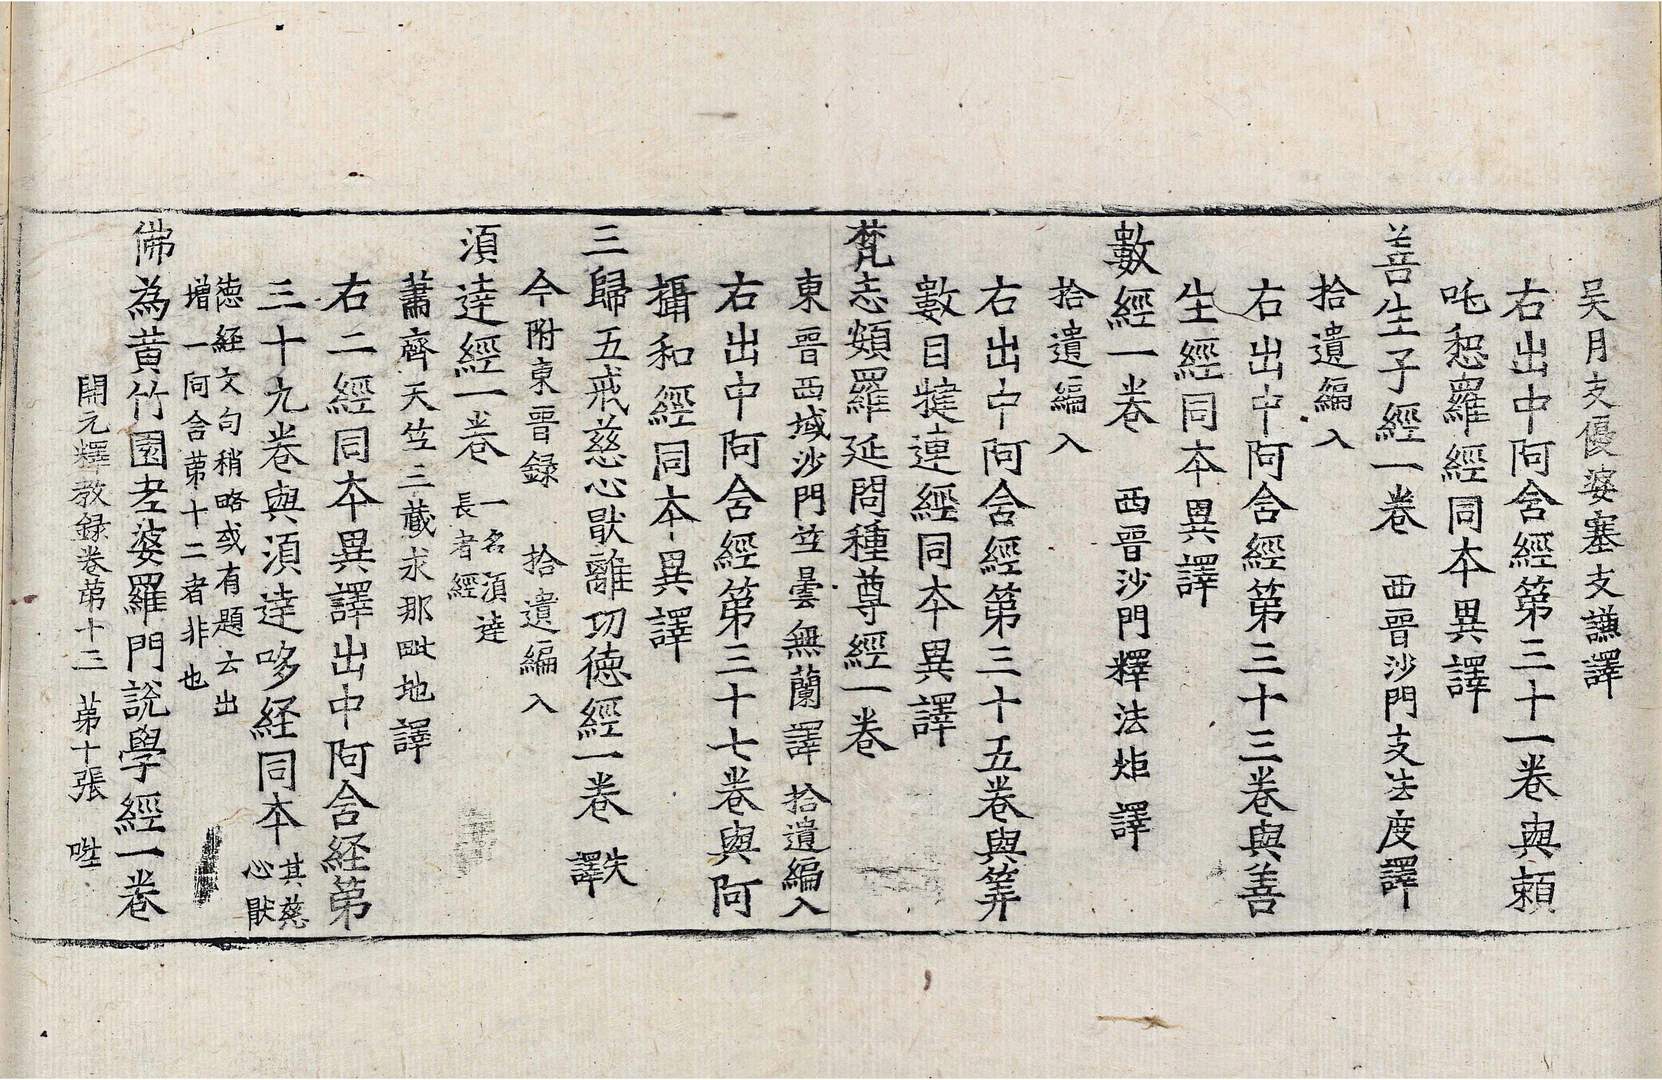 吴月支優婆塞支謙譯
右出中阿含經第三十一卷與賴
吒惒羅經同本異譯
善生子經一卷 西晉沙門支法度譯
拾遺編入
右出中阿含經第三十三卷與善
生經同本異譯
數經一卷 西晉沙門釋法炬譯
拾遺編入
右出中阿含經第三十五卷與筭
數目揵連經同本異譯
梵志頞羅延問種尊經一卷
東晉西域沙門竺曇無蘭譯 拾遺編入
右出中阿含經第三十七卷與阿
攝和經同本異譯
三歸五戒慈心猒離功德經一卷 失譯
今附東晉録 拾遺編入
湏達經一卷 一名湏達
長者經
蕭齊天竺三藏求那毗地譯
右二經同本異譯出中阿含経第
三十九卷與湏達哆経同本 其慈
心猒
徳経文句稍略或有題云出
増一阿含苐十二者非也
佛為黃竹園老婆羅門説學經一卷
開元釋教録卷苐十三 苐十張 陞